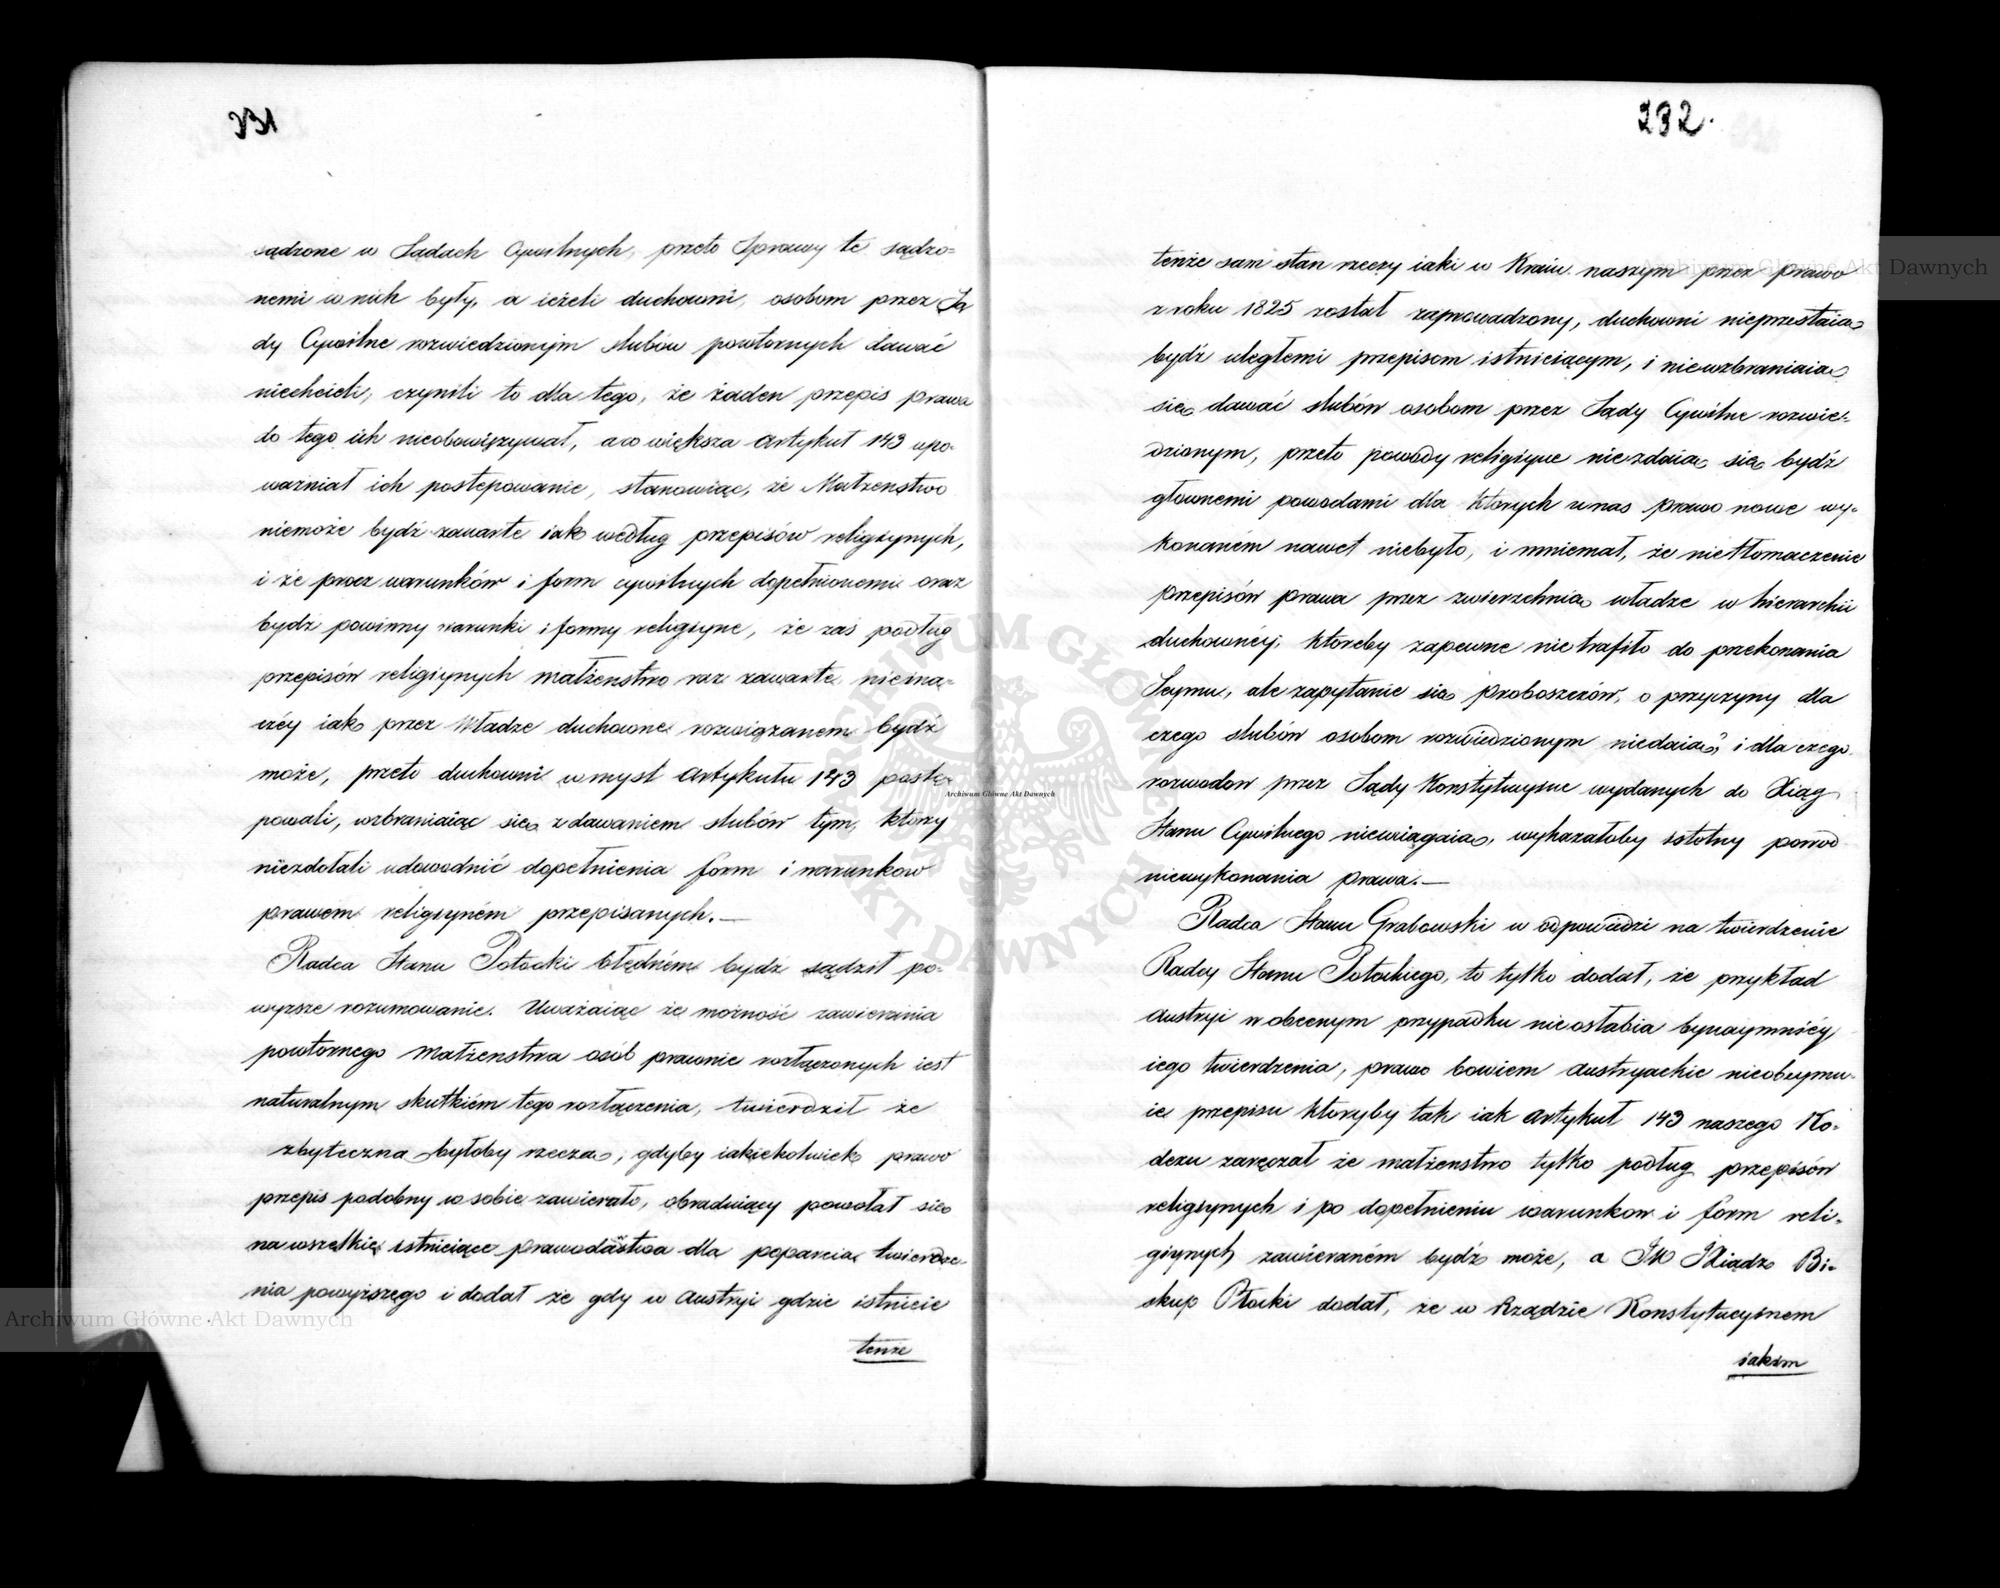 231
sądzone w Sądach Cywilnych, przeto Sprawy te sądzo=
nemi w nich były, a ieżeli duchowni, osobom przez Są
dy Cywilne rozwiedzionym slubów powtornych dawać
niechcieli, czynili to dla tego, że żaden przepis prawa
do tego ich nieobowięzywał, a co większa Artykuł 143 upo-
ważniał ich postępowanie, stanowiąc, że Małżenstwo
niemoże bydź zawarte iak według przepisów religiynych,
i że prócz warunków i form cywilnych dopełnionemi oraz
bydź powinny warunki i formy religiyne, że zaś podług
przepisów religiynych małżenstwo raz zawarte nieina=
czéy iak przez Władze duchowne rozwiązanem bydź
może, przeto duchowni w mysl Artykułu 143 postę-
powali, wzbraniaiąc się z dawaniem slubów tym, ktorzy
niezdołali udowodnić dopełnienia form i warunkow
prawem religiyném przepisanych.—
Radca Stanu Potocki błędném bydź sądził po-
wyzsze rozumowanie. Uważaiąc że możność zawierania
powtornego Małżenstwa osób prawnie rozłączonych iest
naturalnym skutkiém tego rozłączenia, twierdził że
zbyteczną byłoby rzeczą, gdyby iakiekolwiek prawo
przepis podobny w sobie zawierało, obraduiący powołał się
na wszelkie istnieiące prawodastwa dla poparcia twierdze-
nia powyższego i dodał że gdy w Austryi gdzie istnieie
tenże
232.
tenże sam stan rzeczy iaki w Kraiu naszym przez prawo
z roku 1825 został zaprowadzony, duchowni nieprzestaią
bydź uległemi przepisom istnieiącym, i niewzbraniaią
się dawać slubów osobom przez Sądy Cywilne rozwie-
dzionym, przeto powody religiyne niezdaią się bydź
głownemi powodami dla ktorych u nas prawo nowe wy-
konaném nawet niebyło, i mniemał, że nietłomaczenie
przepisów prawa przez zwierzchnią władze w hierarchii
duchownéy, ktoreby zapewne nietrafiło do przekonania
Seymu, ale zapytanie się Proboszczów, o przyczyny dla
czego slubów osobom rozwiedzionym niedaią, i dla czego
rozwodow przez Sądy Konstytucyine wydanych do Xiąg
Stanu Cywilnego niewciągaią, wykazałoby istotny powod
niewykonania prawa.—
Radca Stanu Grabowski w odpowiedzi na twierdzenie
Radcy Stanu Potockiego, to tylko dodał, że przykład
Austryi w obecnym przypadku nieosłabia bynaymniéy
iego twierdzenia, prawo bowiem Austryackie nieobeymu-
ie przepisu ktoryby tak iak Artykuł 143 naszego Ko-
dexu zaręczał że małżenstwo tylko podług przepisów
religiynych i po dopełnieniu warunkow i form reli-
giynych zawieraném bydź może, a JW Xiądz Bi-
skup Płocki dodał, że w Rządzie Konstytucyinem
iakim
Archiwum Główne Akt Dawnych
Archiwum Główne Akt Dawnych
Archiwum Główne Akt Dawnych
ARCHIWUM GŁÓWNE AKT DAWNYCH